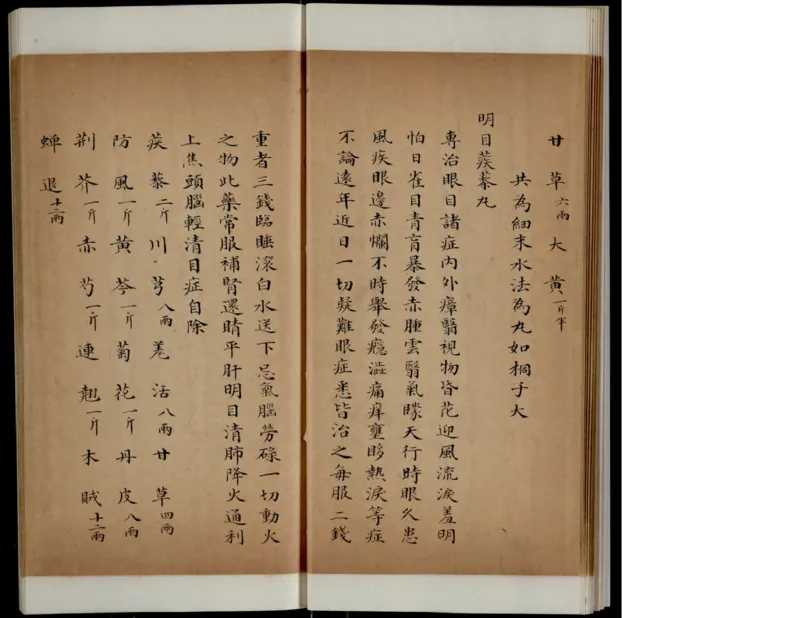 甘草六兩大黃一斤半
共為細末水法為丸如桐子大
明目蒺藜丸
專治眼目諸症內外瘴翳視物皆花迎風流淚羞明
怕日雀目青盲暴發赤腫雲翳氣矇天行時眼久患
風疾眼邊赤爛不時舉發癮澁痛痒壅眵熱淚等症
不論遠年近日一切疑難眼症悉皆治之每服二錢
重者三錢臨睡滾白水送下忌氣腦勞碌一切動火
之物此藥常服補腎還睛平肝明目清肺降火通利
上焦頭腦輕清目症自除
蒺藜二斤川芎八兩羌活八兩甘草四兩
防風一斤黃芩一斤菊花一斤丹皮八兩
荆芥一斤赤芍一斤連翹一斤木賊十二兩
蟬退十二兩